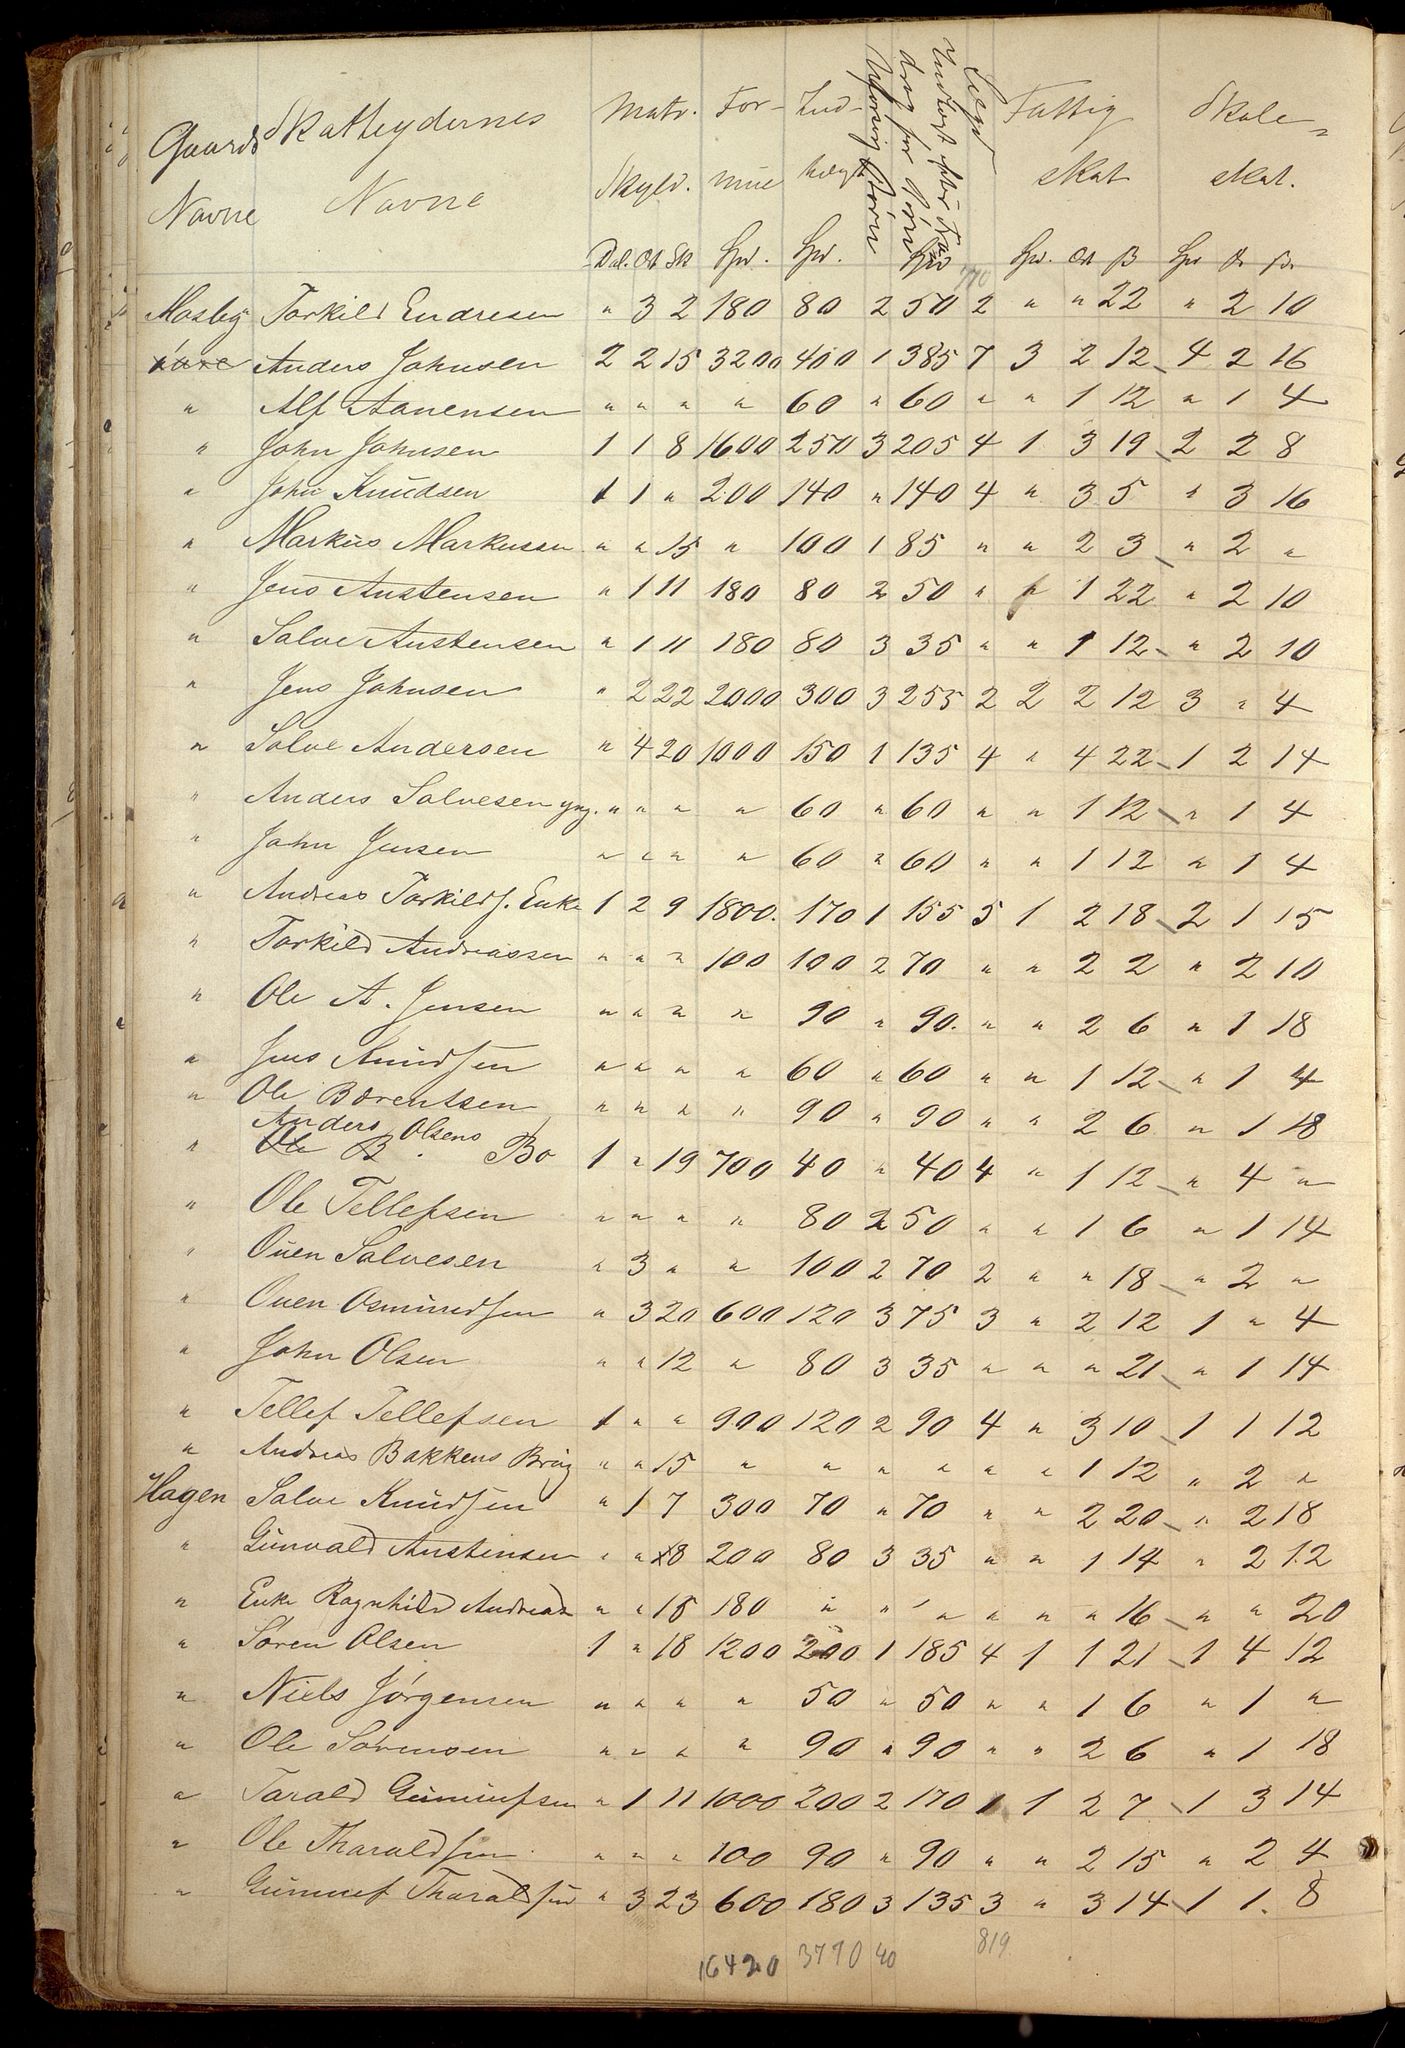 Gaards Skatteydernes Matr. For- Ind- Fattig Skole-
Navne Navne Skyld. mue tægt skat skat.
Uforsørg Børn
Indtægt efter Fradrag for Børn
Dal. Ort Sk Spd. Spd. Spd Spd. Ort ß Spd Ort ß
770
Mosby Torkild Endresen " 3 2 180 80 2 50 2 " " 22 " 2 10
Anders Johnsen 2 2 15 3200 400 1 385 7 3 2 12 4 2 16
" Alf Aanensen " " " " 60 " 60 " " 1 12 " 1 4
" John Johnsen 1 1 8 1600 250 3 205 4 1 3 19 2 2 8
" John Knudsen 1 1 " 200 140 " 140 4 " 3 5 " 3 16
" Markus Markussen " " 15 " 100 1 85 " " 2 3 " 2 "
" Jens Austensen " 1 11 180 80 2 50 " " 1 22 " 2 10
" Salve Austensen " 1 11 180 80 3 35 " " 1 12 " 2 10
" Jens Johnsen " 2 22 2000 300 3 255 2 2 2 12 3 " 4
" Salve Andersen " 4 20 1000 150 1 135 4 " 4 22 1 2 14
" Anders Salvesen yng. " " " " 60 " 60 " " 1 12 " 1 4
" John Jensen " " " " 60 " 60 " " 1 12 " 1 4
" Andreas Torkilds. Enke 1 2 9 1800. 170 1 155 5 1 2 18 2 1 15
" Torkild Andreassen " " " 100 100 2 70 " " 2 2 " 2 10
" Ole A. Jensen " " " " 90 " 90. " " 2 6 " 1 18
" Jens Knudsen " " " " 60 " 60 " " 1 12 " 1 4
" Ole Berentsen " " " " 90 " 90 " " 2 6 " 1 18
Anders Olsens
" Ole B. Bo 1 " 19 700 40 " 40 4 " 1 12 " 4 "
" Ole Tellefsen " " " " 80 2 50 " " 1 6 " 1 14
" Ouen Salvesen " 3 " " 100 2 70 2 " " 18 " 2 "
" Ouen Osmundsen " 3 20 600 120 3 75 3 " 2 12 1 " 4
" John Olsen " " 12 " 80 3 35 " " " 21 " 1 14
" Tellef Tellefsen 1 " " 900 120 2 90 4 " 3 10 1 1 12
" Andreas Bakkens Brug " " 15 " " " " " " 1 12 " 2 "
Hagen Salve Knudsen " 1 7 300 70 " 70 " " 2 20 " 2 18
" Gunvald Austensen " " 18 200 80 3 35 " " 1 14 " 2 12
" Enke Ragnhild Andreas " " 15 180 " " " " " " 16 " " 20
" Søren Olsen 1 " 18 1200 200 1 185 4 1 1 21 1 4 12
" Niels Jørgensen " " " " 50 " 50 " " 1 6 " 1 "
" Ole Sørensen " " " " 90 " 90 " " 2 6 " 1 18
" Tarald Gunnufsen " 1 11 1000 200 2 170 1 1 2 7 1 3 14
" Ole Tharaldsen " " " 100 90 " 90 " " 2 15 " 2 4
" Gunnuf Tharaldsen " 3 23 600 180 3 135 3 " 3 14 1 1. 8
16420 3770 40 819.